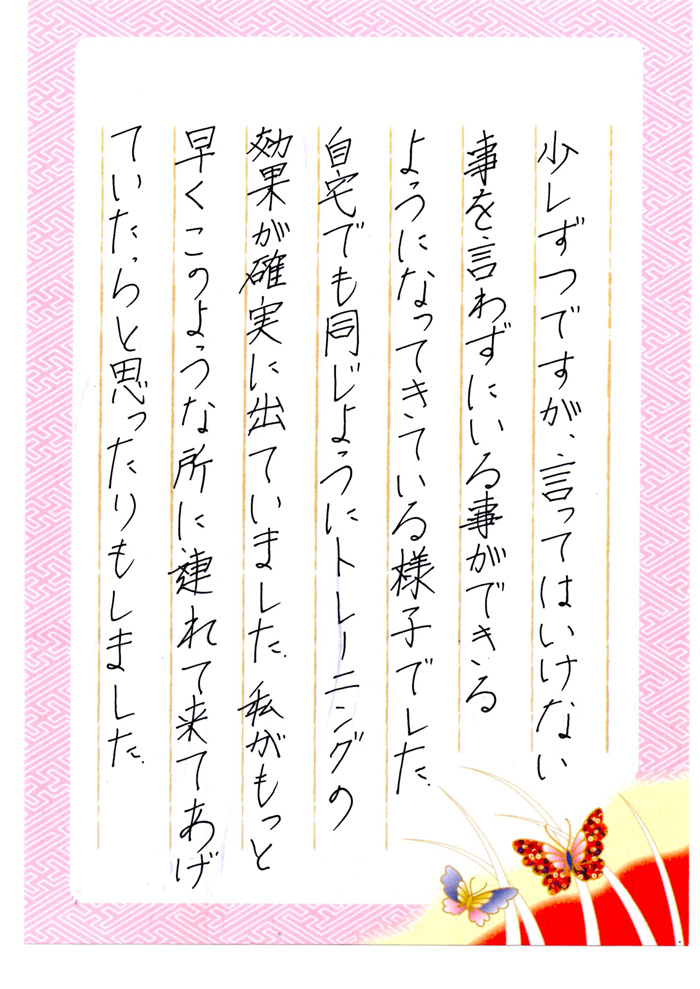 少しずつですが、言ってはいけない
事を言わずにいる事ができる
ようになってきている様子でした。
自宅でも同じようにトレーニングの
効果が確実に出ていました。私がもっと
早くこのような所に連れて来てあげ
ていたらと思ったりもしました。